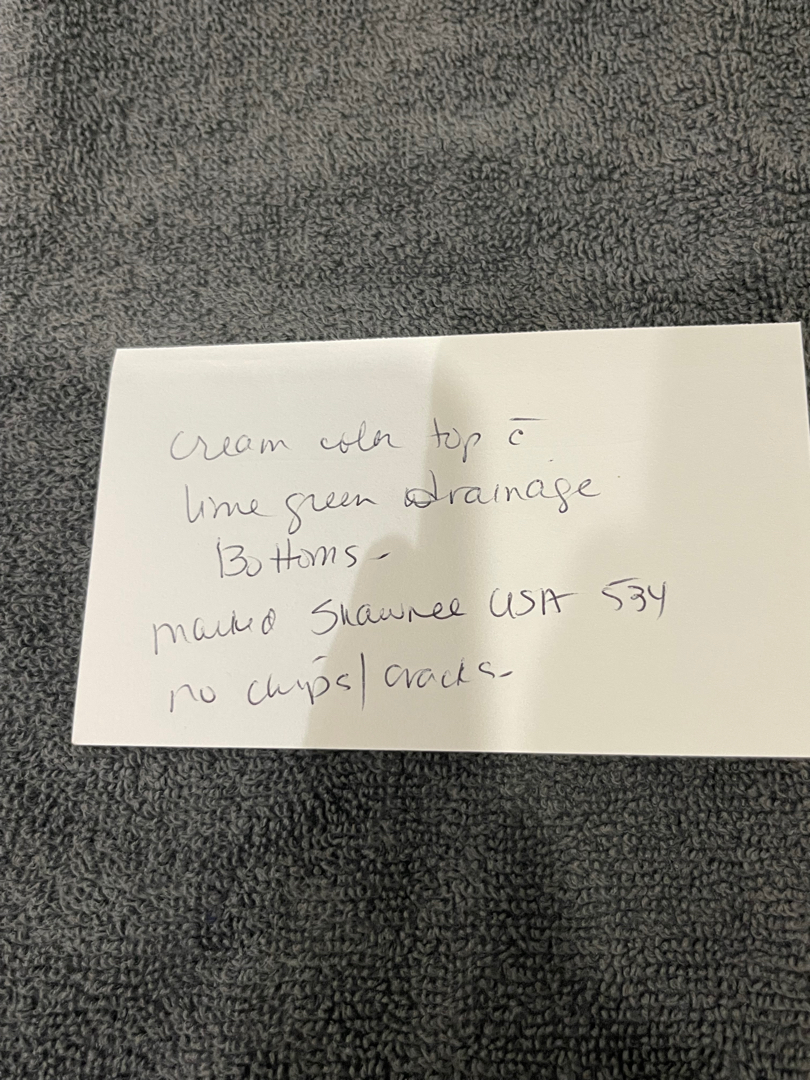 cream color top c̄
lime green drainage
Bottoms -
marked Shawnee USA 534
no chips/cracks -